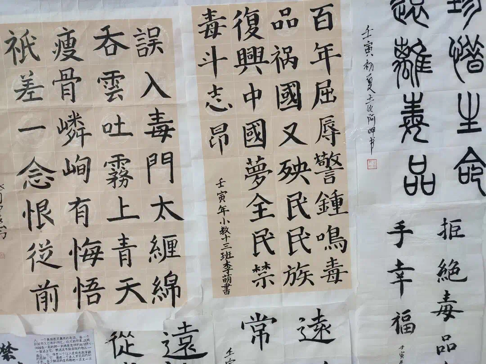 珍惜生命
遠離毒品
壬寅初夏
百年屈辱警鍾鳴毒
品祸國又殃民民族
復興中國夢全民禁
毒斗志昂
壬寅年小教十三班李萌書
誤入毒門太纏綿
吞雲吐霧上青天
瘦骨嶙峋有悔悟
祇差一念恨從前
拒絶毒品
手幸福
遠
常
遠
從
禁